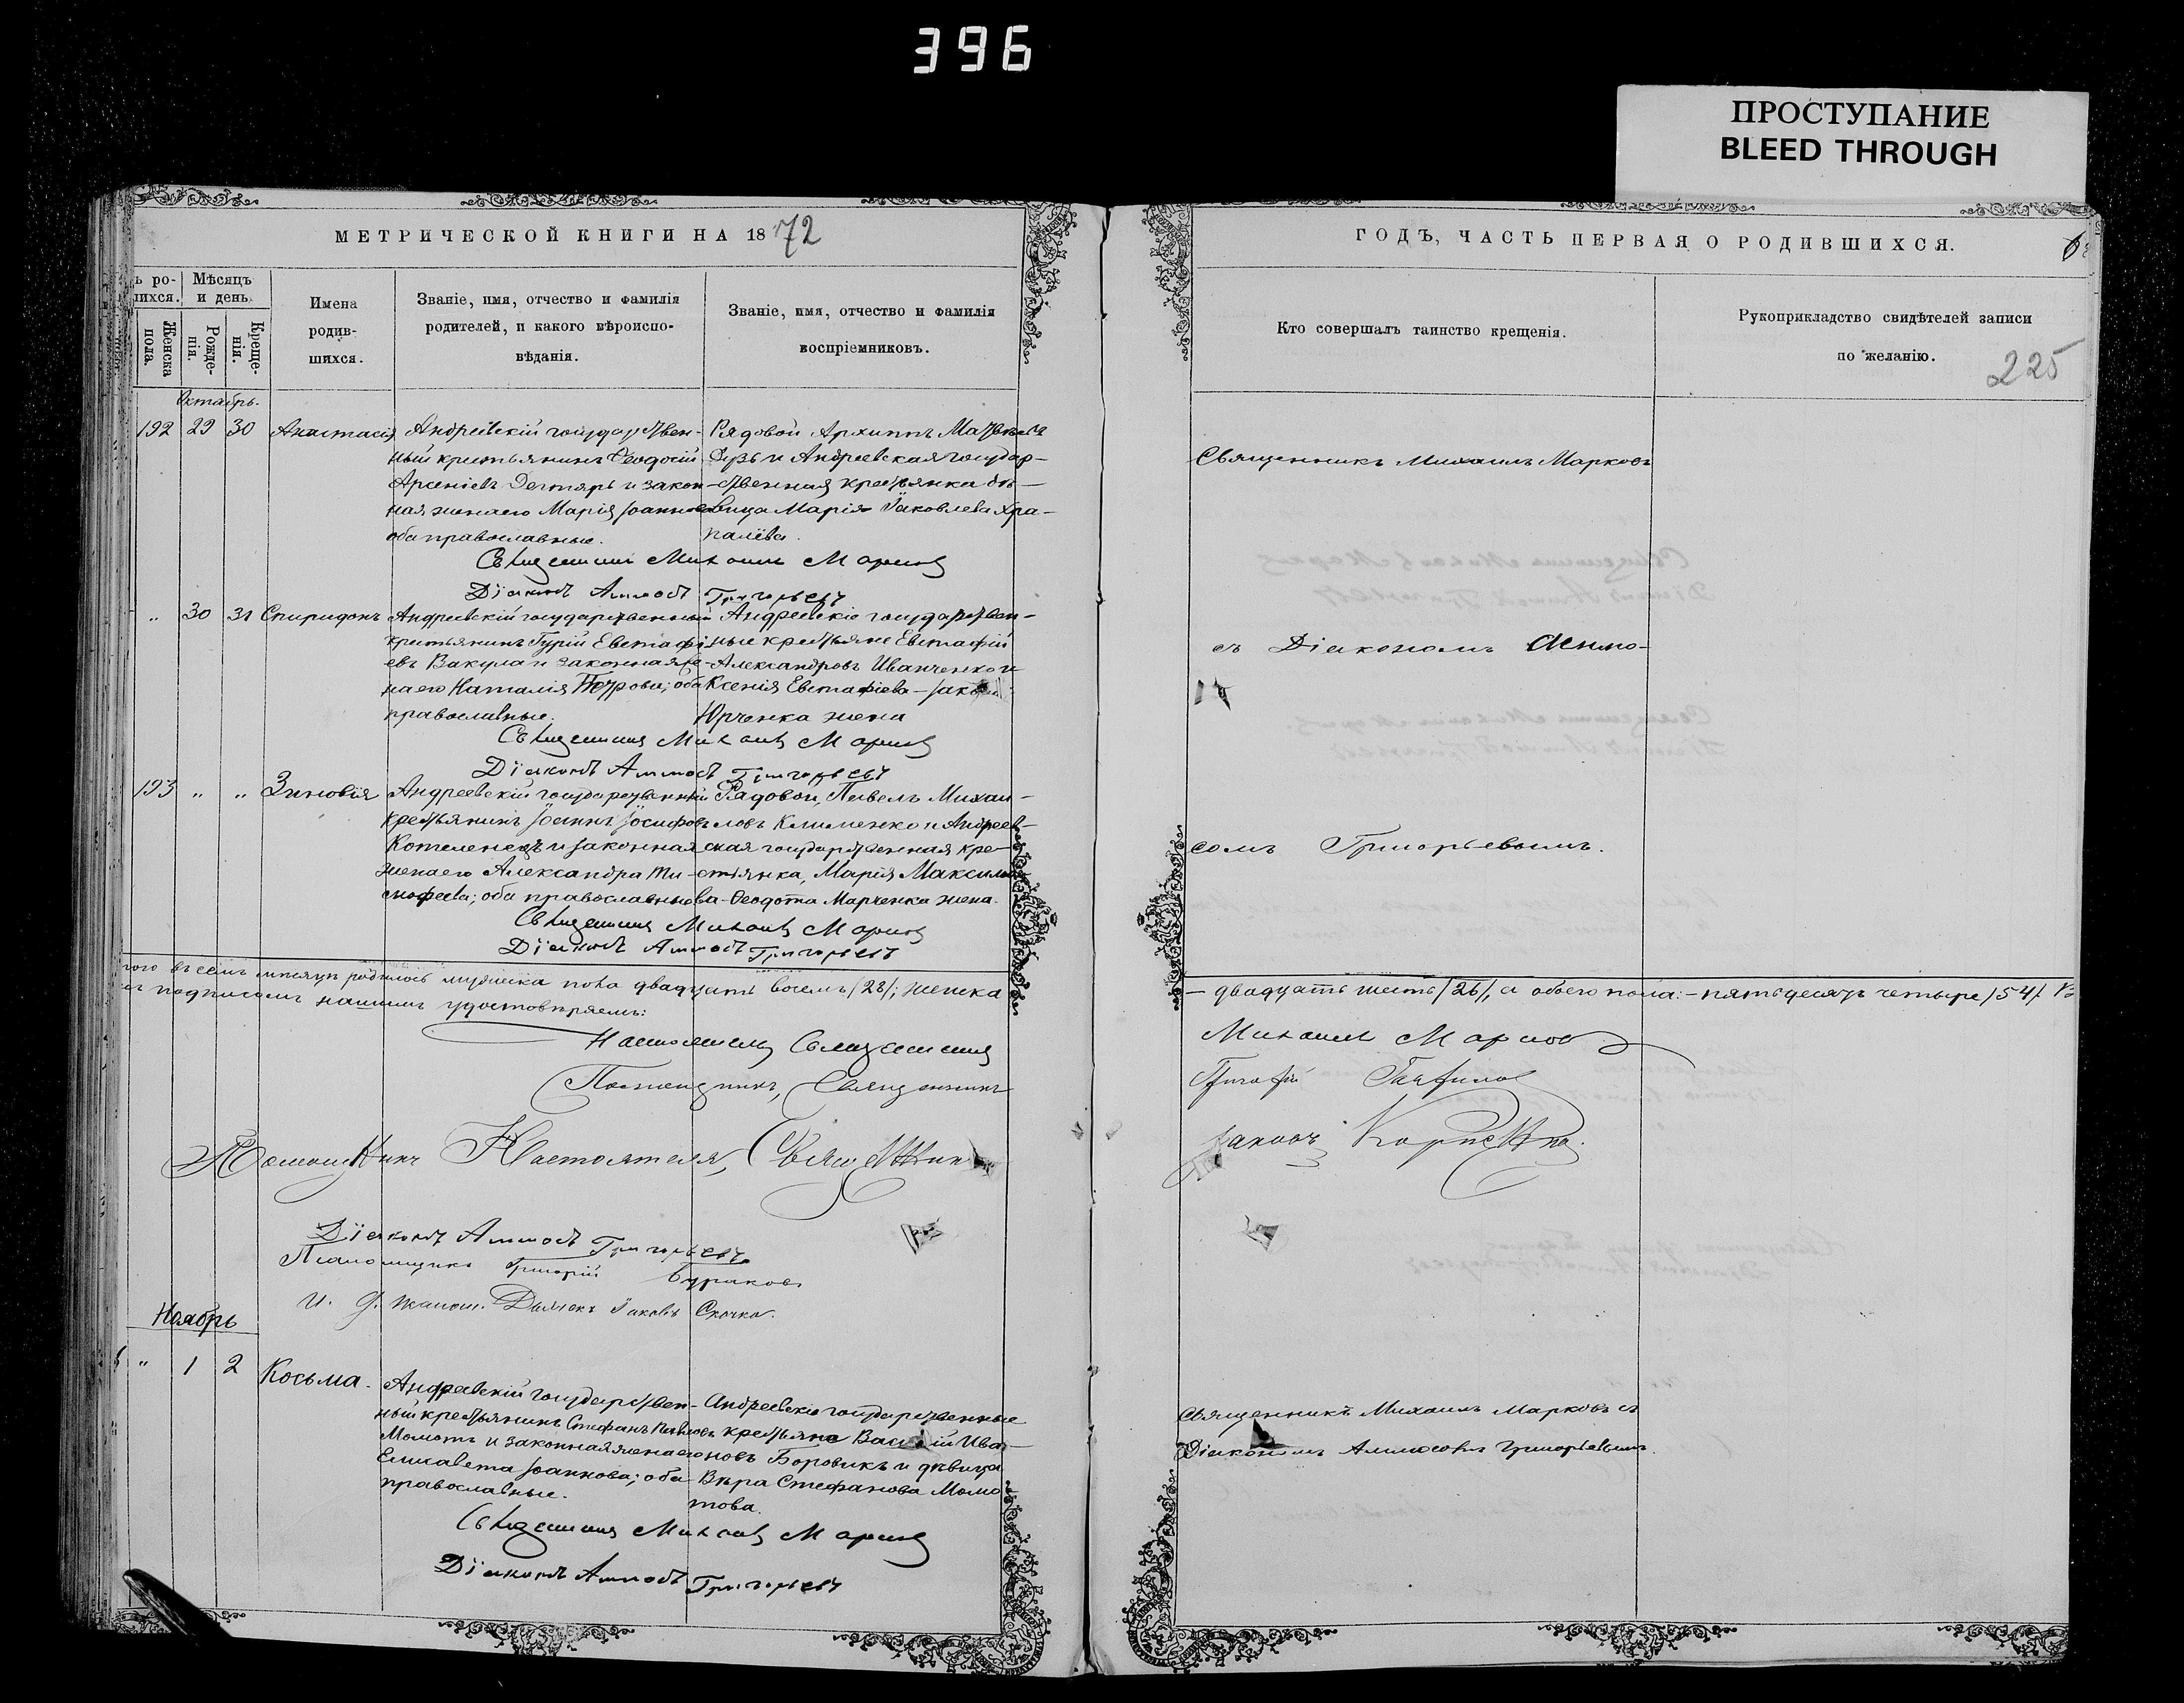 396
ПРОСТУПАНИЕ
BLEED THROUGH
МЕТРИЧЕСКОЙ КНИГИ НА 1872
ГОДЪ, ЧАСТЬ ПЕРВАЯ О РОДИВШИХСЯ.
ь ро-
шихся.
Мѣсяцъ
и день.
Женска
пола.
Рожде-
нія.
Креще-
нія.
Имена
родив-
шихся.
Званіе, имя, отчество и фамилія
родителей, и какого вѣроиспо-
вѣданія.
Званіе, имя, отчество и фамилія
воспріемниковъ.
Кто совершалъ таинство крещенія.
Рукоприкладство свидѣтелей записи
по желанію.
225
Октябрь.
192 29 30 Анастасія
Андреевскій государствен-
ный крестьянинъ Ѳеодосій
Арсеніевъ Дегтярь и закон-
ная жена его Марія Іоаннова
оба православные.
Рядовой Архиппъ Матвѣевъ
Гузь и Андреевская государ-
ственная крестьянка дѣ-
вица Марія Іаковлева Хра-
палёва.
Священникъ Михаилъ Марковъ
Священникъ Михаилъ Марковъ
Діаконъ Аммосъ Григорьевъ
" 30 31 Спиридонъ
Андреевскій государственный
крестьянинъ Гурій Евстафі-
евъ Вакула и законная же-
на его Наталія Петрова; оба
православные.
Андреевскіе государствен-
ные крестьяне Евстафій
Александровъ Иванченко и
Ксенія Евстафіева
Юрченка жена
съ Діакономъ Аммо-
Священникъ Михаилъ Марковъ
Діаконъ Аммосъ Григорьевъ
193 " " Зиновія
Андреевскій государственный
крестьянинъ Іоаннъ Іосифовъ
Котеленецъ и законная
жена его Александра Ти-
моѳеева; оба православные
Рядовой, Павелъ Михаи-
ловъ Клименко и Андреев-
ская государственная кре-
стьянка, Марія Максимо-
ва Ѳеодота Марченка жена.
сомъ Григорьевымъ.
Священникъ Михаилъ Марковъ
Діаконъ Аммосъ Григорьевъ
того въ семъ мѣсяцѣ родилось мужеска пола двадцать восемь /28/; женска
- двадцать шесть /26/, а обоего пола: - пятьдесятъ четыре /54/. В
подписомъ нашимъ удостовѣряемъ:
Настоятель Священникъ
Михаилъ Марковъ
Помощникъ, Священникъ
Помощникъ Настоятеля, Священникъ
Іаковъ
Діаконъ Аммосъ Григорьевъ
Псаломщикъ Григорій Бураковъ
И. д. псалом. Дьячекъ Іаковъ Скочко.
Ноябрь
" 1 2 Косьма.
Андреевскій государствен-
ный крестьянинъ Стефанъ Павловъ
Момотъ и законная жена его
Елисавета Іоаннова; оба
православные.
Андреевскіе государственные
крестьяне Василій Ива-
новъ Боровикъ и дѣвица
Вѣра Стефанова Момо
това.
Священникъ Михаилъ Марковъ съ
Діакономъ Аммосомъ Григорьевымъ.
Священникъ Михаилъ Марковъ
Діаконъ Аммосъ Григорьевъ